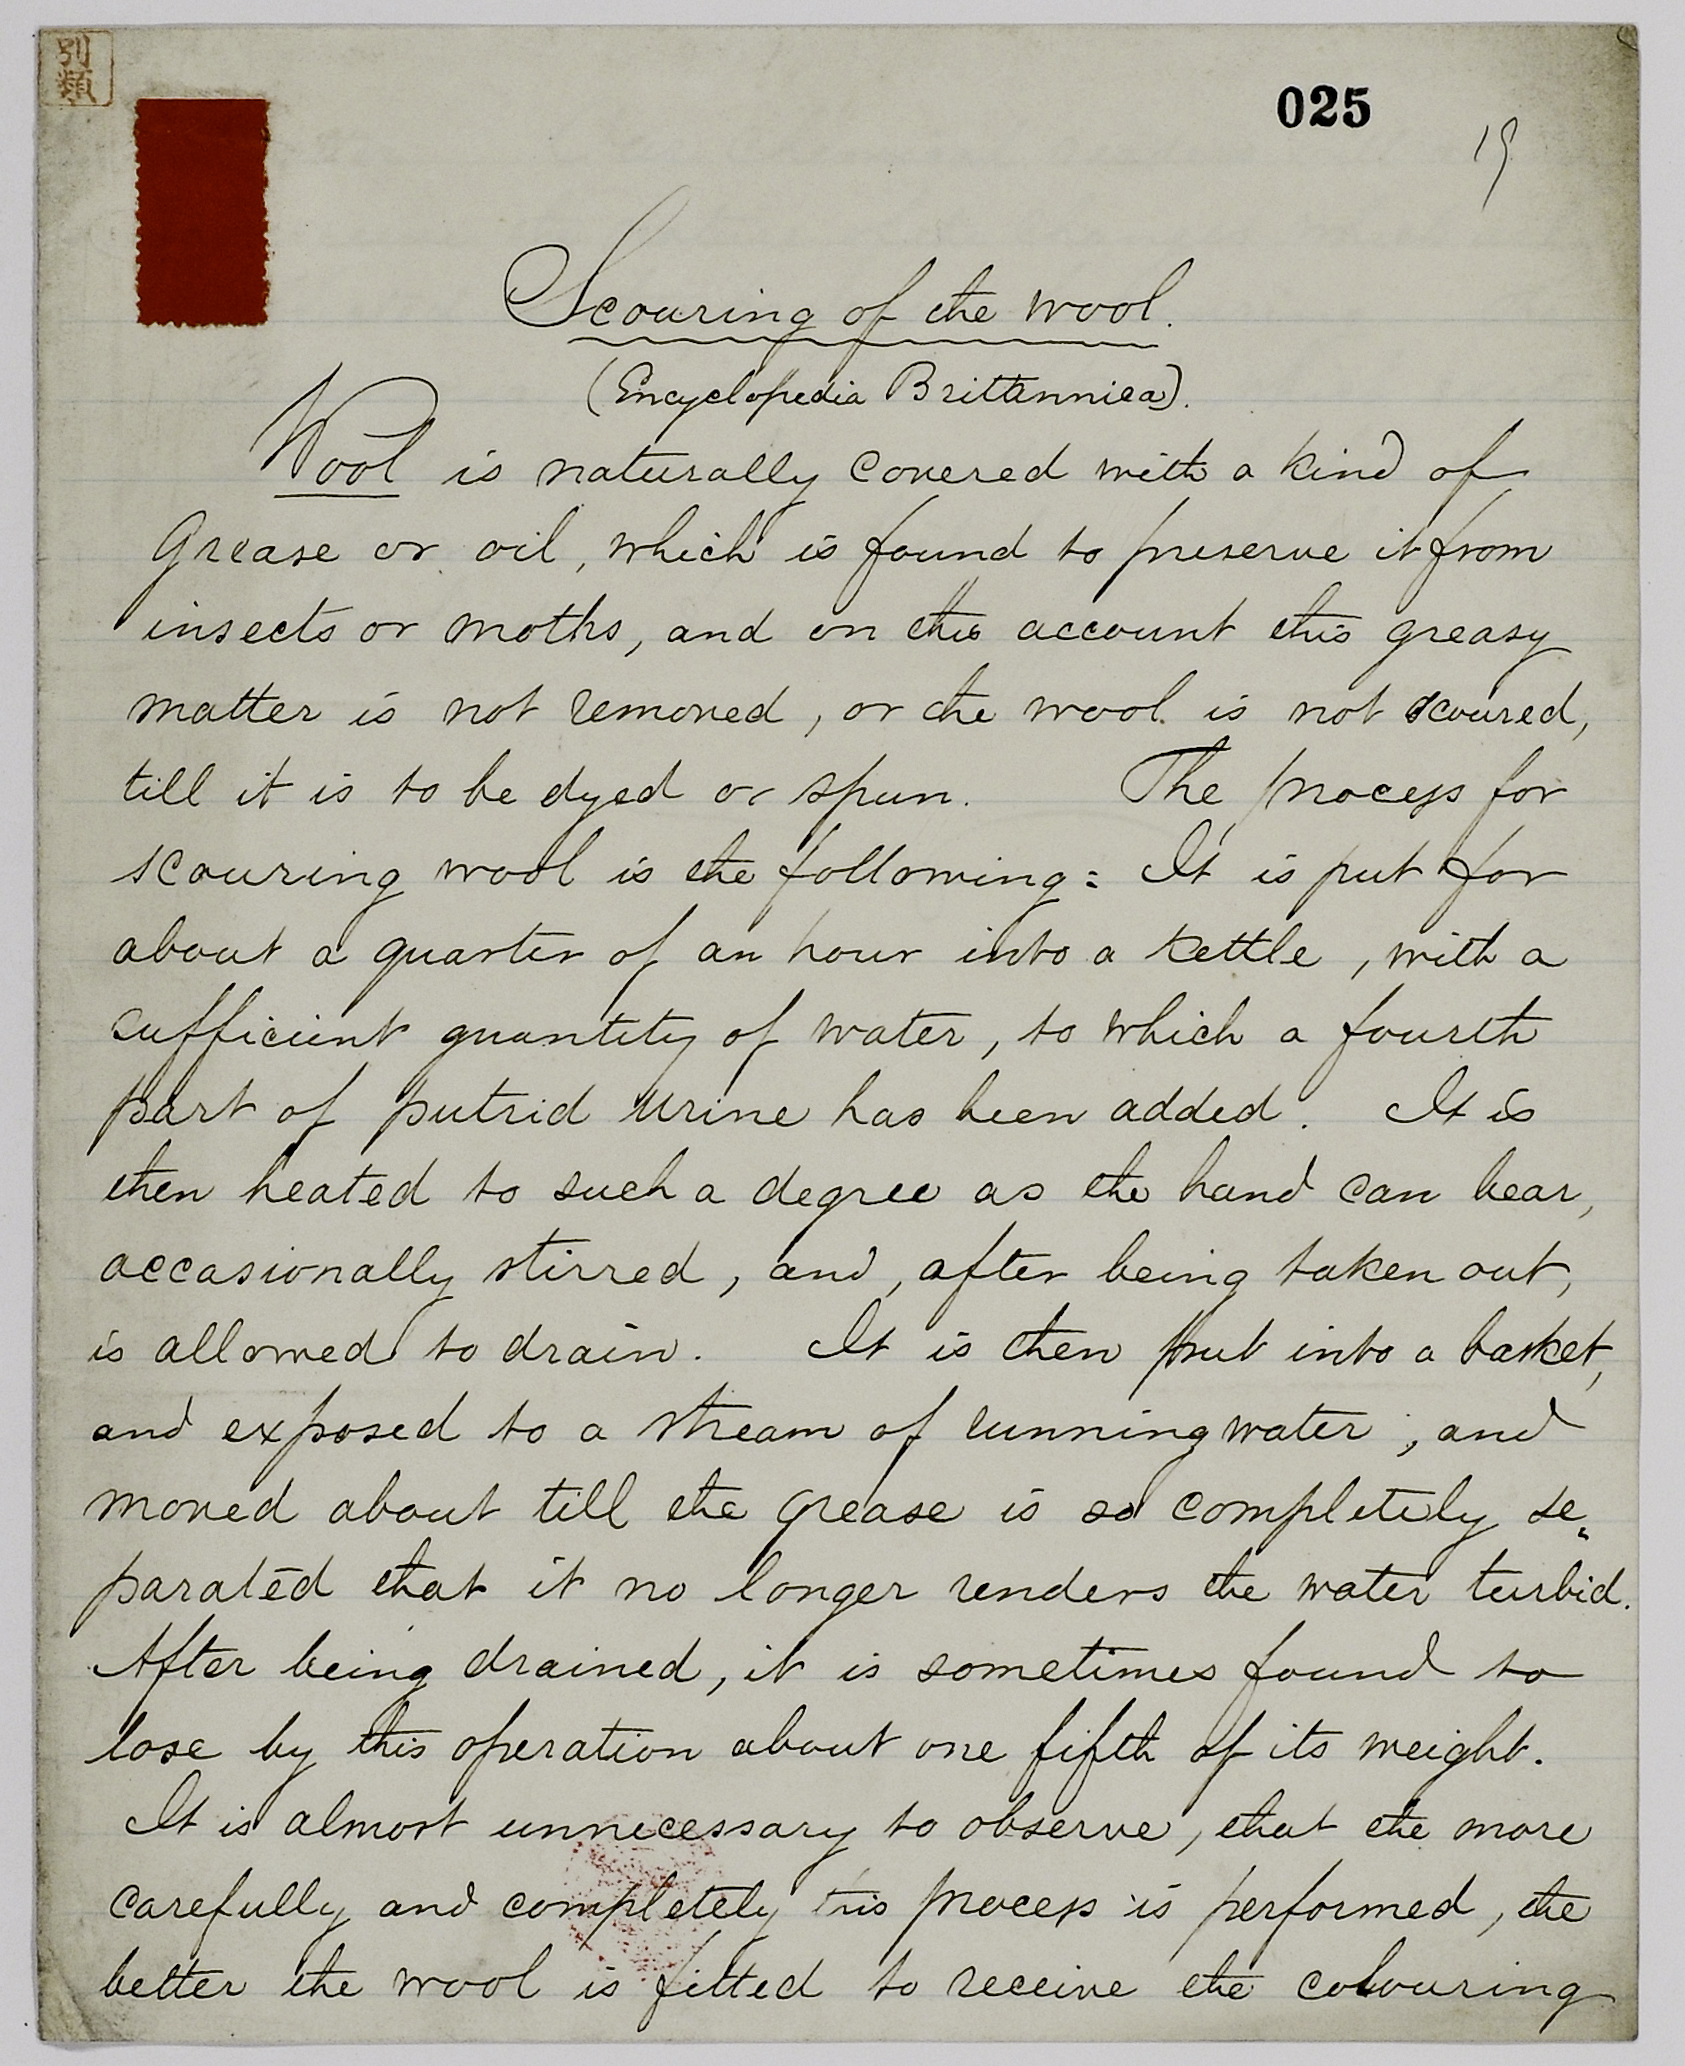 別
類
025
19
Scouring of the wool.
(Encyclopedia Brittannica).
Wool is naturally covered with a kind of
Grease or oil, which is found to preserve it from
insects or moths, and on this account this greasy
matter is not removed, or the wool is not scoured,
till it is to be dyed or spun. The process for
scouring wool is the following: It is put for
about a quarter of an hour into a kettle, with a
sufficient quantity of water, to which a fourth
part of putrid urine has been added. It is
then heated to such a degree as the hand can bear,
occasionally stirred, and, after being taken out,
is allowed to drain. It is then put into a basket,
and exposed to a stream of running water, and
moved about till the grease is so completely se„
parated that it no longer renders the water turbid.
After being drained, it is sometimes found to
lose by this operation about one fifth of its weight.
It is almost unnecessary to observe, that the more
carefully and completely this process is performed, the
better the wool is fitted to receive the colouring